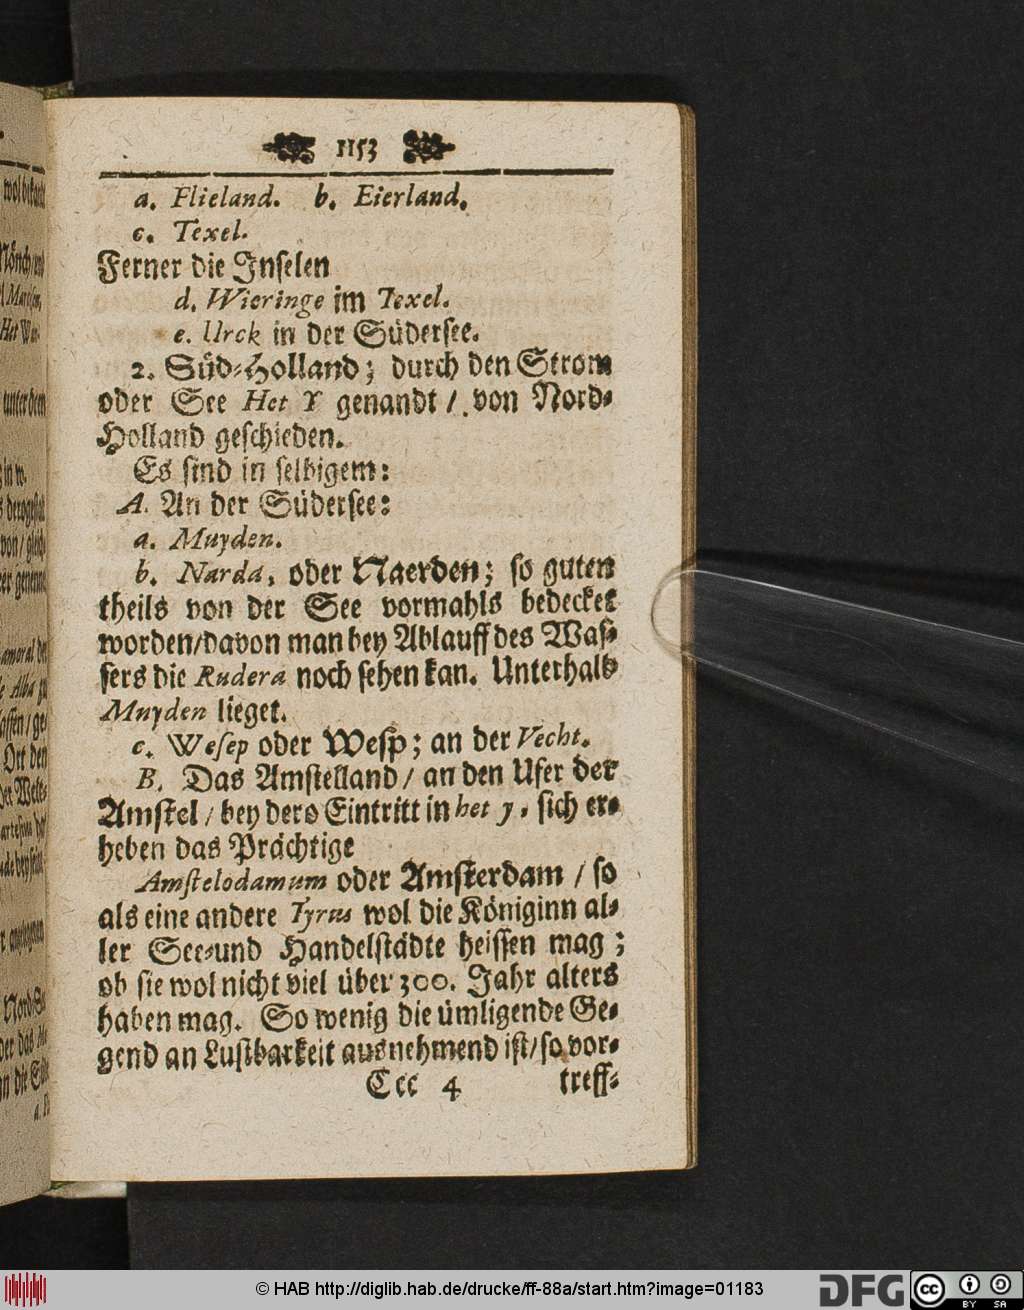 1153
a. Flieland. b. Eierland.
c. Texel.
Ferner die Jnſelen
d. Wieringe im Texel.
e. Urck in der Süderſee.
2. Süd-Holland; durch den Strom
oder See Het Y genandt / von Nord-
Holland geſchieden.
Es ſind in ſelbigem:
A. An der Süderſee:
a. Muyden.
b. Narda, oder Naerden; ſo guten
theils von der See vormahls bedecket
worden/davon man bey Ablauff des Waſ-
ſers die Rudera noch ſehen kan. Unterhalb
Muyden lieget.
c. Weſep oder Weſp; an der Vecht.
B. Das Amſtelland / an den Ufer der
Amſtel / bey dero Eintritt in het y, ſich er-
heben das Prächtige
Amſtelodamum oder Amſterdam / ſo
als eine andere Tyrus wol die Königinn al-
ler See-und Handelſtädte heiſſen mag;
ob ſie wol nicht viel über 300. Jahr alters
haben mag. So wenig die ümligende Ge-
gend an Luſtbarkeit ausnehmend iſt/ſo vor-
Ccc 4 treff-
© HAB http://diglib.hab.de/drucke/ff-88a/start.htm?image=01183
DFG
cc
BY SA